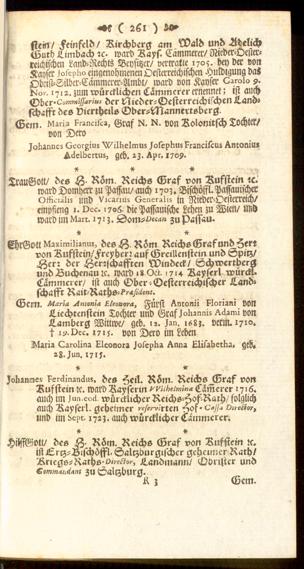 ( 261 )
stein/ Feinfeld/ Kirchberg am Wald und Ahelich
Guth Limbach ꝛc. ward Kays. Cämmerer/ Nieder-Oester-
reichischen Land-Rechts Beysitzer/ vertratte 1705. bey der von
Kayser Josepho eingenohmenen Oesterreichischen Huldigung das
Obrist-Silber-Cämmerer-Ambt/ ward von Kayser Carolo 9.
Nov. 1712. zum würcklichen Cämmerer ernennet; ist auch
Ober-Commissarius der Nieder-Oesterreichischen Land-
schafft des Viertheils Ober-Mannertsberg.
Gem. Maria Francisca, Graf N. N. von Kolonitsch Tochter/
von Dero
Johannes Georgius Wilhelmus Josephus Franciscus Antonius
Adelbertus, geb. 23. Apr. 1709.
* * *
TrauGott/ des H. Röm. Reichs Graf von Kufstein ꝛc.
ward Domherr zu Passau/ auch 1703. Bischöffl. Passauischer
Officialis und Vicarius Generalis in Nieder-Oesterreich/
empfieng 1. Dec. 1706. die Passauische Lehen zu Wien/ und
ward im Mart. 1713. Dom-Decan zu Passau.
* * *
EhrGott Maximilianus, des H. Röm. Reichs Graf und Herr
von Kufstein/ Freyherr auf Greillenstein und Spitz/
Herr der Herrschafften Windeck/ Schwertberg
und Buchenau ꝛc. ward 18 Oct. 1714 Kayserl. würckl.
Cämmerer/ ist auch Ober-Oesterreichischer Land-
schafft Rait-Raths-Præsident.
Gem. Maria Antonia Eleonora, Fürst Antonii Floriani von
Liechtenstein Tochter und Graf Johannis Adami von
Lamberg Wittwe/ geb. 12. Jan. 1683. verm. 1710.
† 19. Dec. 1715. von Dero im Leben
Maria Carolina Eleonora Josepha Anna Elisabetha, geb.
28. Jun. 1715.
*
Johannes Ferdinandus, des Heil. Röm. Reichs Graf von
Kufstein ꝛc. ward Kayserin Wilhelmina Cämerer 1716.
auch im Jun. eod. würcklicher Reichs-Hof-Rath/ folglich
auch Kayserl. geheimer reservirten Hof-Cassa Director,
und im Sept. 1723. auch würcklicher Cämmerer.
* *
HilffGott/ des H. Röm. Reichs Graf von Kufstein ꝛc.
ist Ertz-Bischöffl. Saltzburgischer geheimer Rath/
Kriegs-Raths-Director, Landmann/ Obrister und
Commandant zu Saltzburg.
R 3 Gem.